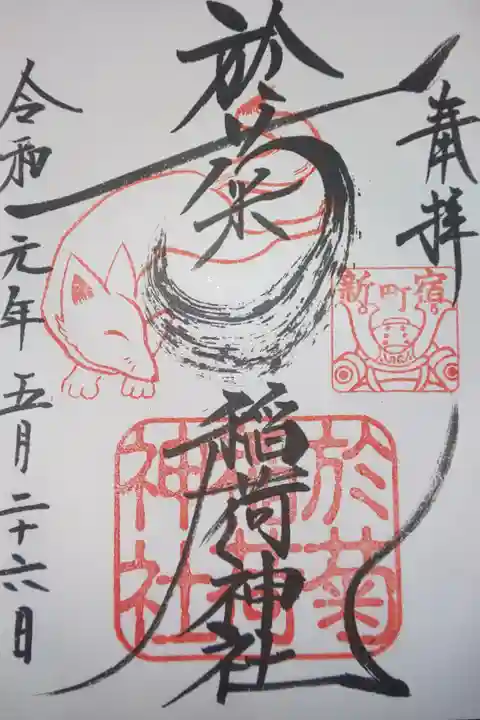 奉拝
新町宿
於菊稲荷神社
於菊稲荷神社
令和元年五月二十六日